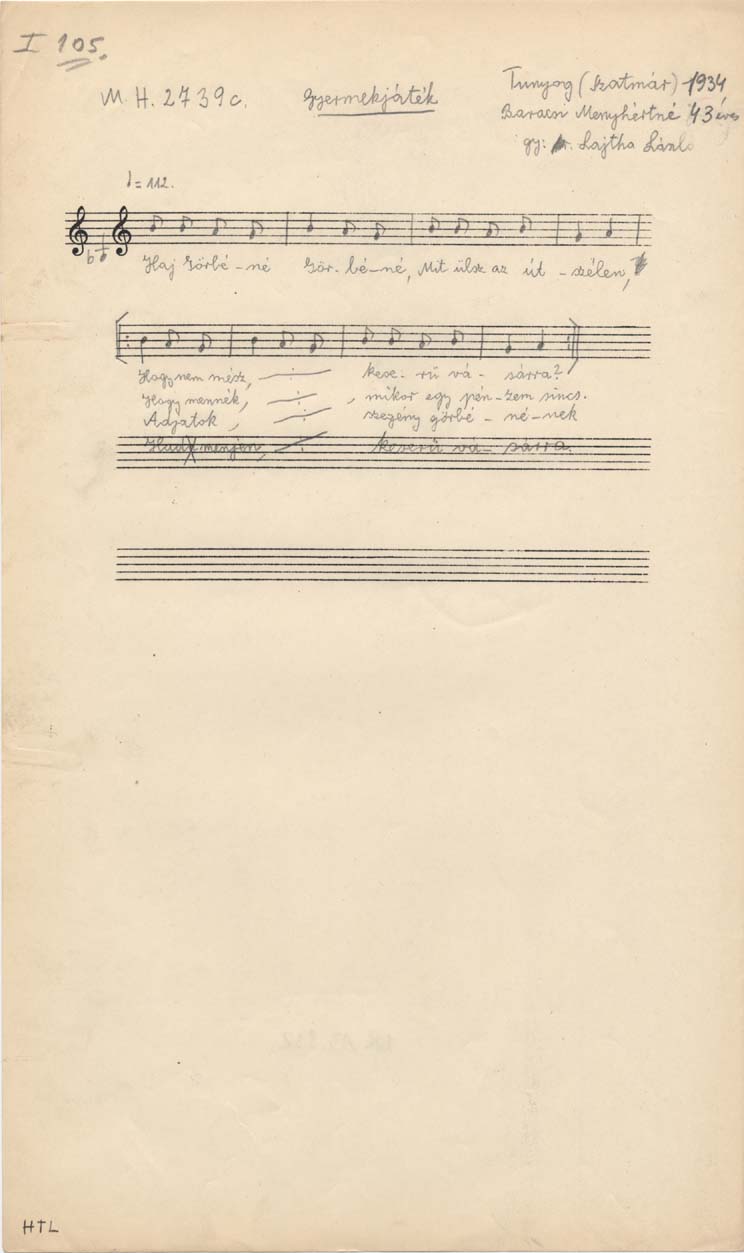 I 105.
M. H. 2739c.
Gyermekjáték
Tunyog (Szatmár) 1934
Baracsi Menyhértné 43 éves
gy: Dr. Lajtha László
♩ = 112.
Haj Görbé-né Gör-bé-né, Mit ülsz az út-szélen,
Hogy nem mész, —:— kese-rű vá-sárra?
Hogy mennék, —:—, mikor egy pén-zem sincs.
Adjatok, —:— szegény görbé-né-nek
Hadd menjen, —:— keserű vá-sárra.
HTL